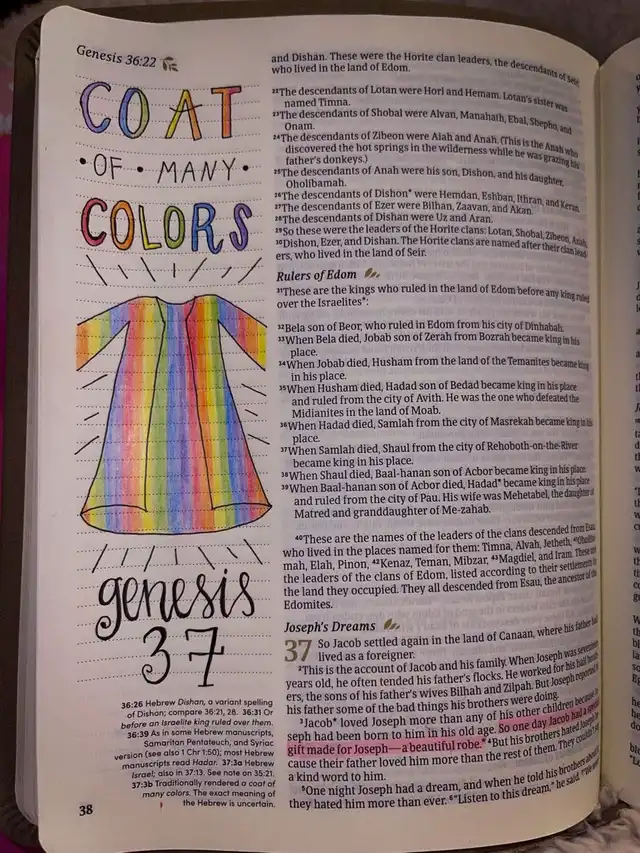 Genesis 36:22
COAT
• OF • MANY •
COLORS
genesis
37
36:26 Hebrew Dishan, a variant spelling
of Dishon; compare 36:21, 28. 36:31 Or
before an Israelite king ruled over them.
36:39 As in some Hebrew manuscripts,
Samaritan Pentateuch, and Syriac
version (see also 1 Chr 1:50); most Hebrew
manuscripts read Hadar. 37:3a Hebrew
Israel; also in 37:13. See note on 35:21.
37:3b Traditionally rendered a coat of
many colors. The exact meaning of
the Hebrew is uncertain.
38
and Dishan. These were the Horite clan leaders, the descendants of Seir,
who lived in the land of Edom.
22The descendants of Lotan were Hori and Hemam. Lotan's sister was
named Timna.
23The descendants of Shobal were Alvan, Manahath, Ebal, Shepho, and
Onam.
24The descendants of Zibeon were Aiah and Anah. (This is the Anah who
discovered the hot springs in the wilderness while he was grazing his
father's donkeys.)
25The descendants of Anah were his son, Dishon, and his daughter,
Oholibamah.
26The descendants of Dishon* were Hemdan, Eshban, Ithran, and Keran.
27The descendants of Ezer were Bilhan, Zaavan, and Akan.
28The descendants of Dishan were Uz and Aran.
29So these were the leaders of the Horite clans: Lotan, Shobal, Zibeon, Anah,
30Dishon, Ezer, and Dishan. The Horite clans are named after their clan lead-
ers, who lived in the land of Seir.
Rulers of Edom
31These are the kings who ruled in the land of Edom before any king ruled
over the Israelites*:
32Bela son of Beor, who ruled in Edom from his city of Dinhabah.
33When Bela died, Jobab son of Zerah from Bozrah became king in his
place.
34When Jobab died, Husham from the land of the Temanites became king
in his place.
35When Husham died, Hadad son of Bedad became king in his place
and ruled from the city of Avith. He was the one who defeated the
Midianites in the land of Moab.
36When Hadad died, Samlah from the city of Masrekah became king in his
place.
37When Samlah died, Shaul from the city of Rehoboth-on-the-River
became king in his place.
38When Shaul died, Baal-hanan son of Acbor became king in his place.
39When Baal-hanan son of Acbor died, Hadad* became king in his place
and ruled from the city of Pau. His wife was Mehetabel, the daughter of
Matred and granddaughter of Me-zahab.
40These are the names of the leaders of the clans descended from Esau,
who lived in the places named for them: Timna, Alvah, Jetheth, 41Oholiba-
mah, Elah, Pinon, 42Kenaz, Teman, Mibzar, 43Magdiel, and Iram. These are
the leaders of the clans of Edom, listed according to their settlements in
the land they occupied. They all descended from Esau, the ancestor of the
Edomites.
Joseph's Dreams
37 So Jacob settled again in the land of Canaan, where his father had
lived as a foreigner.
2This is the account of Jacob and his family. When Joseph was seventeen
years old, he often tended his father's flocks. He worked for his half broth-
ers, the sons of his father's wives Bilhah and Zilpah. But Joseph reported
his father some of the bad things his brothers were doing.
3Jacob* loved Joseph more than any of his other children because Jo-
seph had been born to him in his old age. So one day Jacob had a special
gift made for Joseph—a beautiful robe.* 4But his brothers hated Joseph be-
cause their father loved him more than the rest of them. They couldn't say
a kind word to him.
5One night Joseph had a dream, and when he told his brothers about it,
they hated him more than ever. 6"Listen to this dream," he said. 7"We